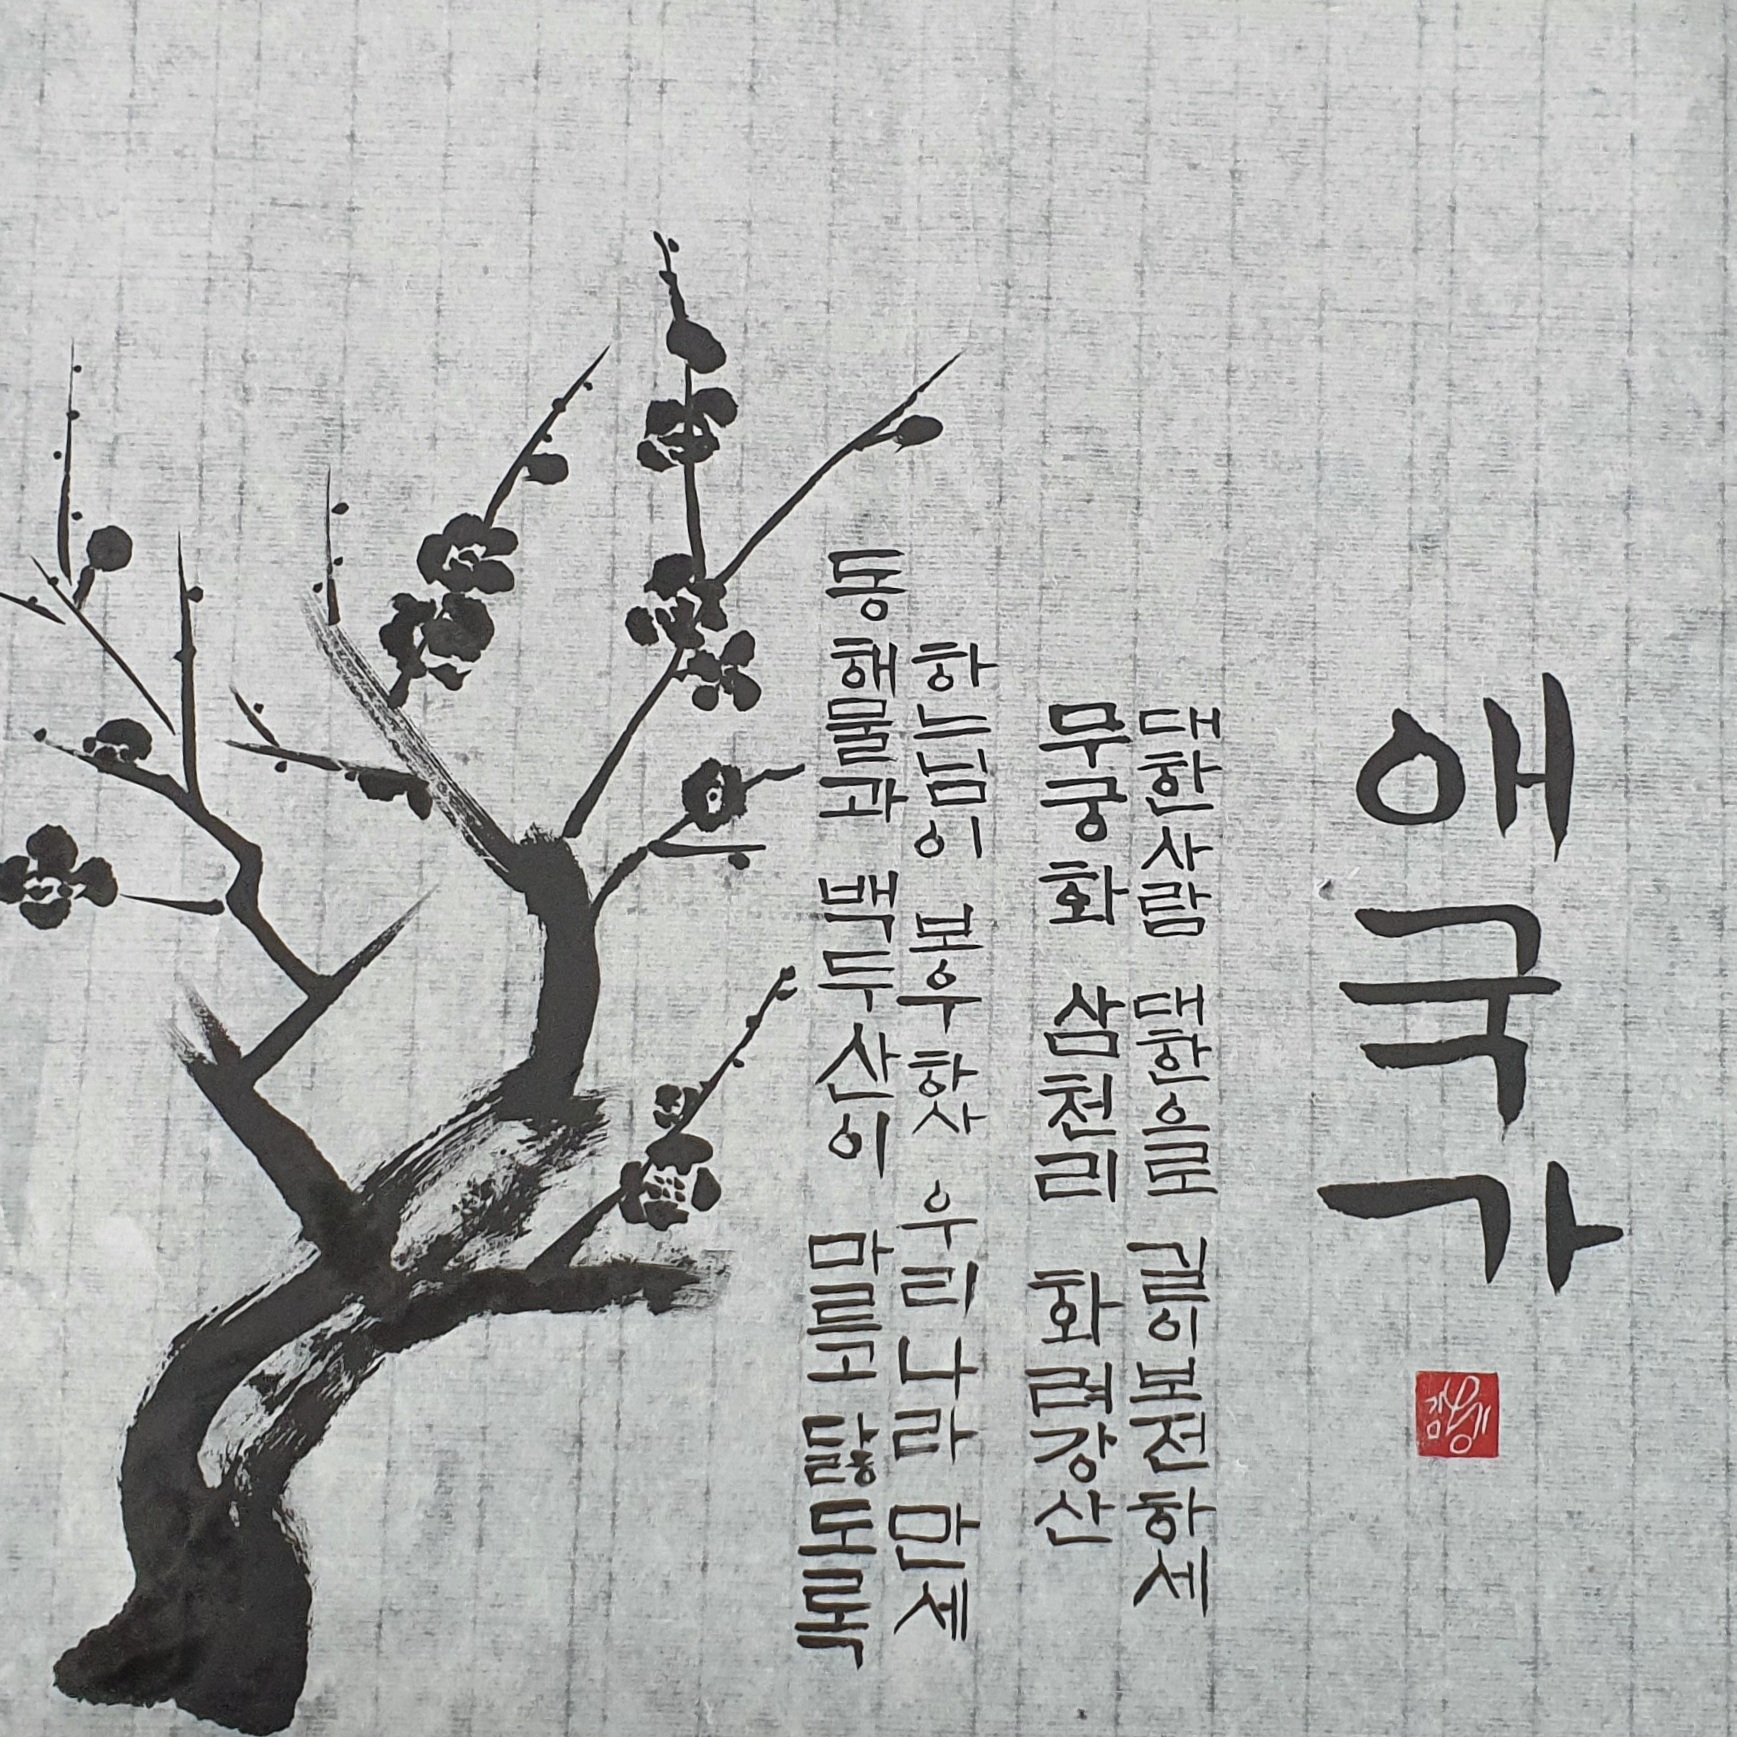 애국가
동해물과 백두산이 마르고 닳도록
하느님이 보우하사 우리나라 만세
무궁화 삼천리 화려강산
대한사람 대한으로 길이보전하세